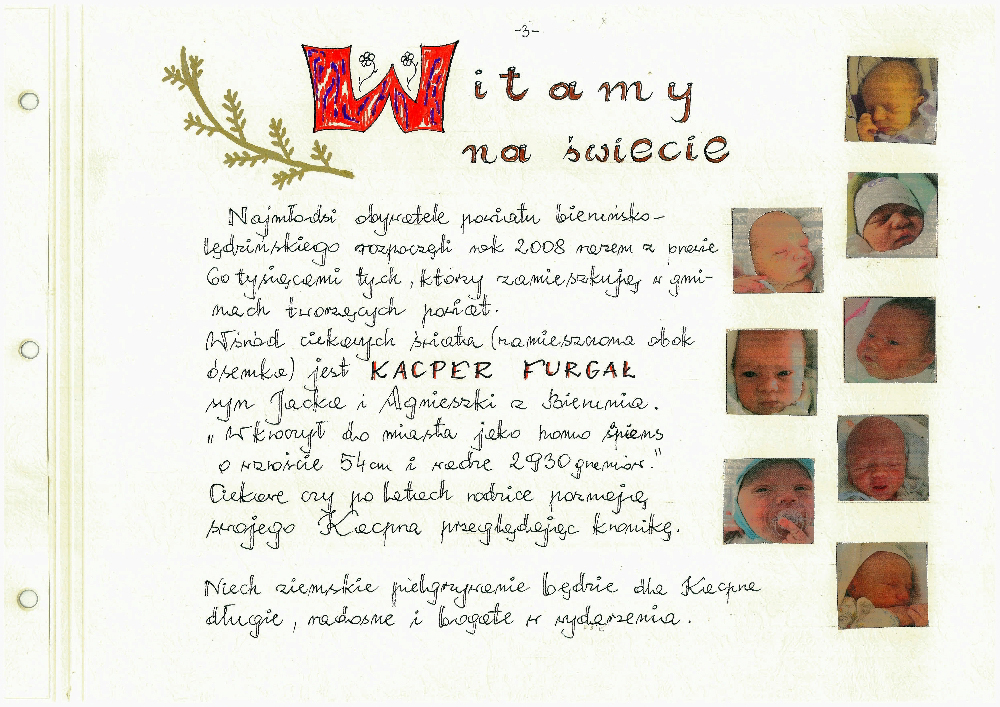 -3-
Witamy
na świecie
Najmłodsi obywatele powiatu bieruńsko-
lędzińskiego rozpoczęli rok 2008 razem z prawie
60 tysiącami tych, którzy zamieszkują w gmi-
nach tworzących powiat.
Wśród ciekawych świata (zamieszczona obok
ósemka) jest KACPER FURGAŁ
syn Jacka i Agnieszki z Bierunia.
"Wkroczył do miasta jako homo śpiens
o wzroście 54 cm i wadze 2930 gramów."
Ciekawe czy po latach rodzice poznają
swojego Kacpra przeglądając kronikę.
Niech ziemskie pielgrzymowanie będzie dla Kacpra
długie, radosne i bogate w wydarzenia.